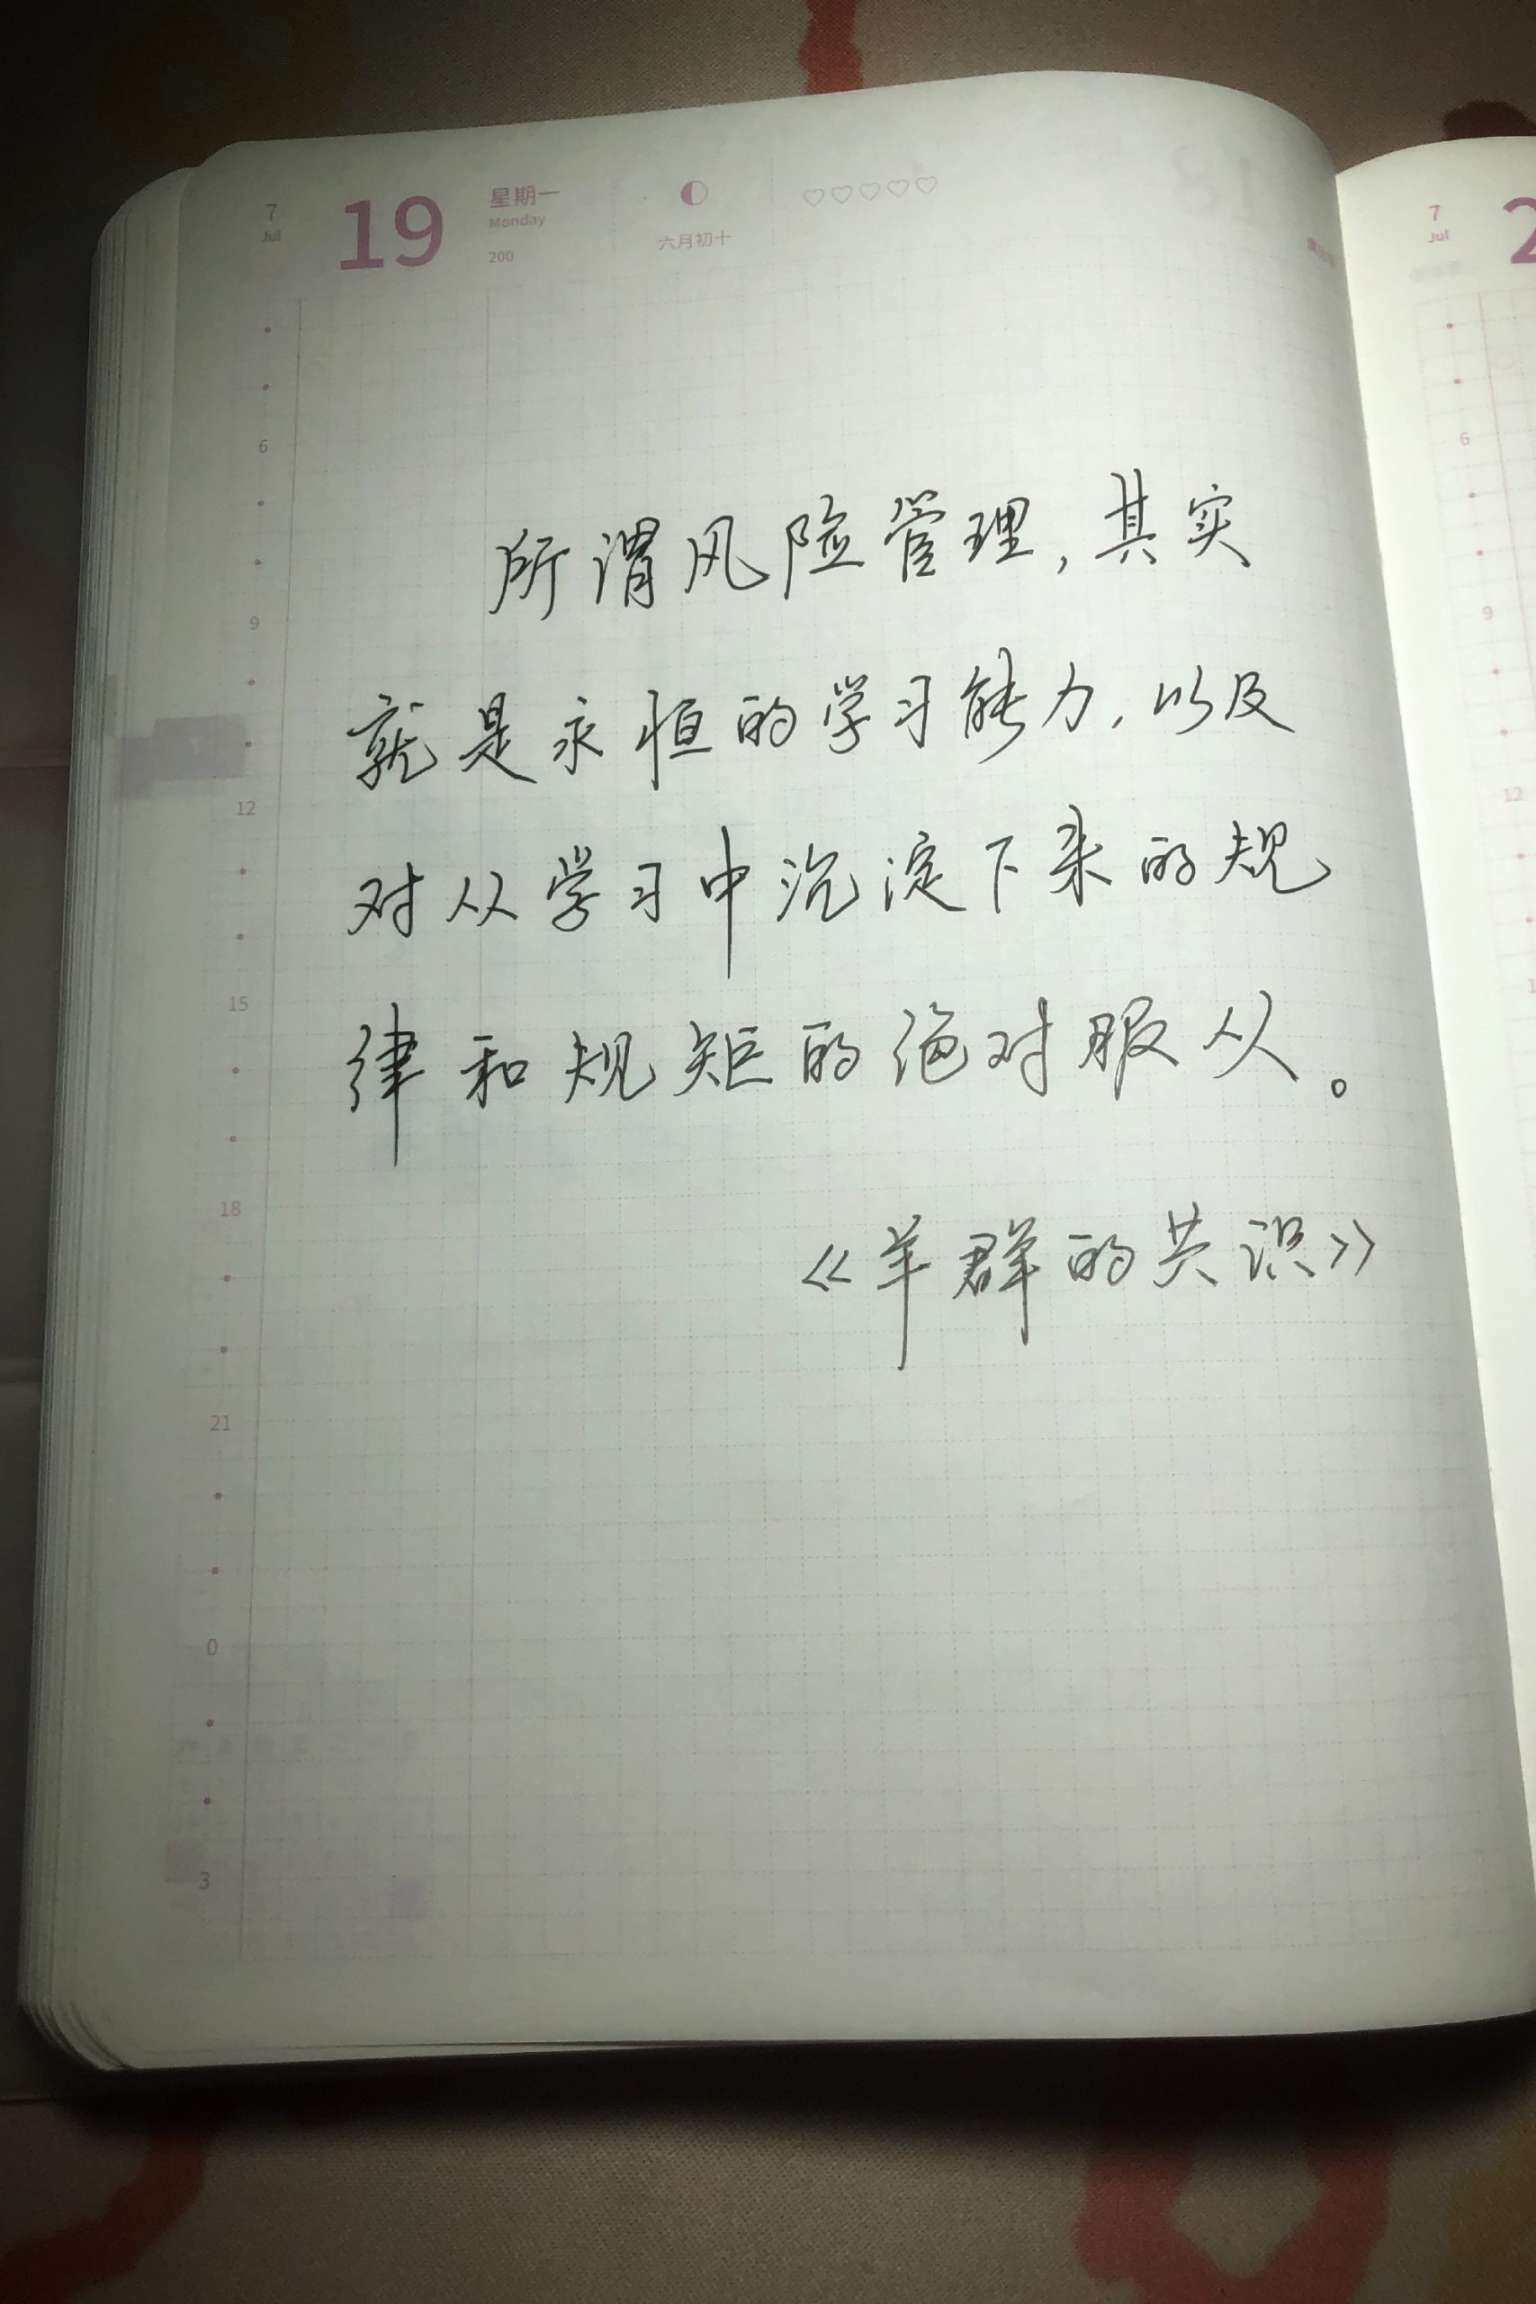 7
Jul
19
星期一
Monday
200
六月初十
6
9
12
15
18
21
0
3
所谓风险管理，其实
就是永恒的学习能力，以及
对从学习中沉淀下来的规
律和规矩的绝对服从。
《羊群的共识》
7
Jul
2
6
9
12